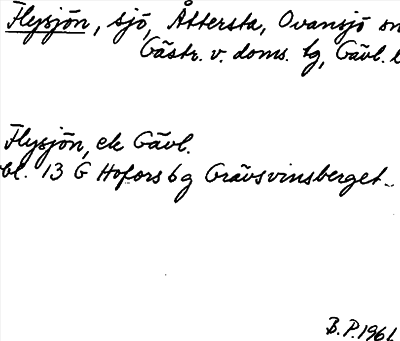 Flysjön, sjö, Åttersta, Ovansjö sn
Gästr. v. doms. tg, Gävl. l
Flysjön, ek Gävl.
bl. 13 G Hofors 6 g Grävsvinsberget
B.P. 1961